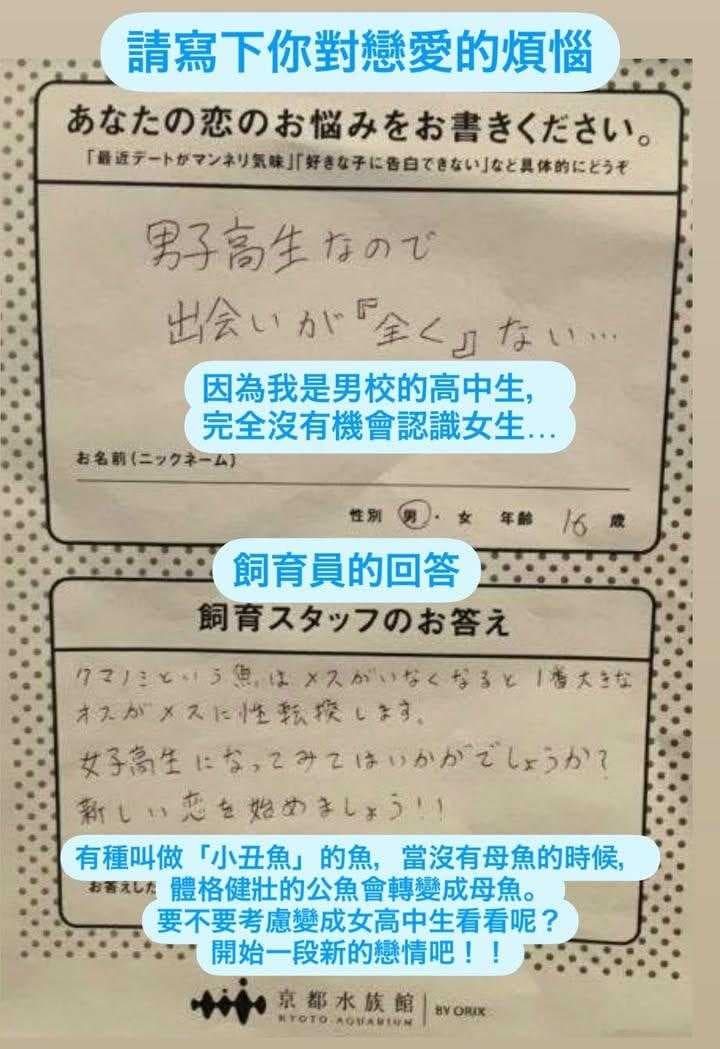 請寫下你對戀愛的煩惱
あなたの恋のお悩みをお書きください。
「最近デートがマンネリ気味」「好きな子に告白できない」など具体的にどうぞ
男子高生なので
出会いが『全く』ない…
因為我是男校的高中生,
完全沒有機會認識女生…
お名前(ニックネーム)
性別 男・女 年齢 16 歳
飼育員的回答
飼育スタッフのお答え
クマノミという魚はメスがいなくなると1番大きな
オスがメスに性転換します。
女子高生になってみてはいかがでしょうか?
新しい恋を始めましょう!!
有種叫做「小丑魚」的魚,當沒有母魚的時候,
お答えした
體格健壯的公魚會轉變成母魚。
要不要考慮變成女高中生看看呢?
開始一段新的戀情吧!!
京都水族館 BY ORIX
KYOTO AQUARIUM